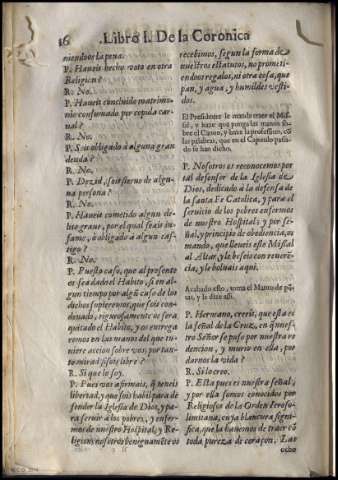 16 Libro I. De la Coronica
niendoos la pena.
P. Haueis hecho voto en otra
Religion?
R. No.
P. Haueis concluido matrimo-
nio consumado por copula car-
nal?
R. No.
P. Sois obligado à alguna gran
deuda?
R. No.
P. Dezid, sois sieruo de algu-
na persona?
R. No.
P. Haueis cometido algun de-
lito graue, por el qual seais in-
fame, ò obligado a algun cas-
tigo?
R. No.
P. Puesto caso, que al presente
os sea dado el Habito, si en al-
gun tiempo por algũ caso de los
dichos supieremos, que sois con-
denado, rigurosamente os sera
quitado el Habito, y os entrega
remos en las manos del que tu-
uiere accion sobre vos, por tan-
to mirad, sois libre?
R. Si que lo soy.
P. Pues vos afirmais, q̃ teneis
libertad, y que sois habil para de
fender la Iglesia de Dios, y pa-
ra seruir à los pobres, y enfer-
mos de nuestro Hospital, y Re-
ligion, nosotros benignamẽte os
recebimos, segun la forma de
nuestros estatutos, no prometi-
endoos regalos, ni otra cosa, que
pan, y agua, y humildes vesti-
dos.
El Presidente le manda traer el Mis-
sal, y haze que ponga las manos so-
bre el Canon, y haze la profession, cõ
las palabras, que en el Capitulo passa-
do se han dicho.
P. Nosotros os reconocemos por
tal defensor de la Iglesia de
Dios, dedicado à la defensa de
la santa Fe Catolica, y para el
seruicio de los pobres enfermos
de nuestro Hospital: y por se-
ñal, y principio de obediencia, os
mando, que lleueis este Missal
al Altar, y le beseis con reueren-
cia, y le boluais aqui.
Acabado esto, toma el Manto de pũ-
tas, y le dize assi.
P. Hermano, creeis, que esta es
la señal de la Cruz, en q̃ nues-
tro Señor se puso por nuestra re
dencion, y murio en ella, por
darnos la vida?
R. Si lo creo.
P. Esta pues es nuestra señal,
y por ella somos conocidos por
Religiosos de la Orden Ieroso-
limitana; en su blancura signi-
fica, que la hauemos de traer cõ
toda pureza de coraçon. Las
ocho